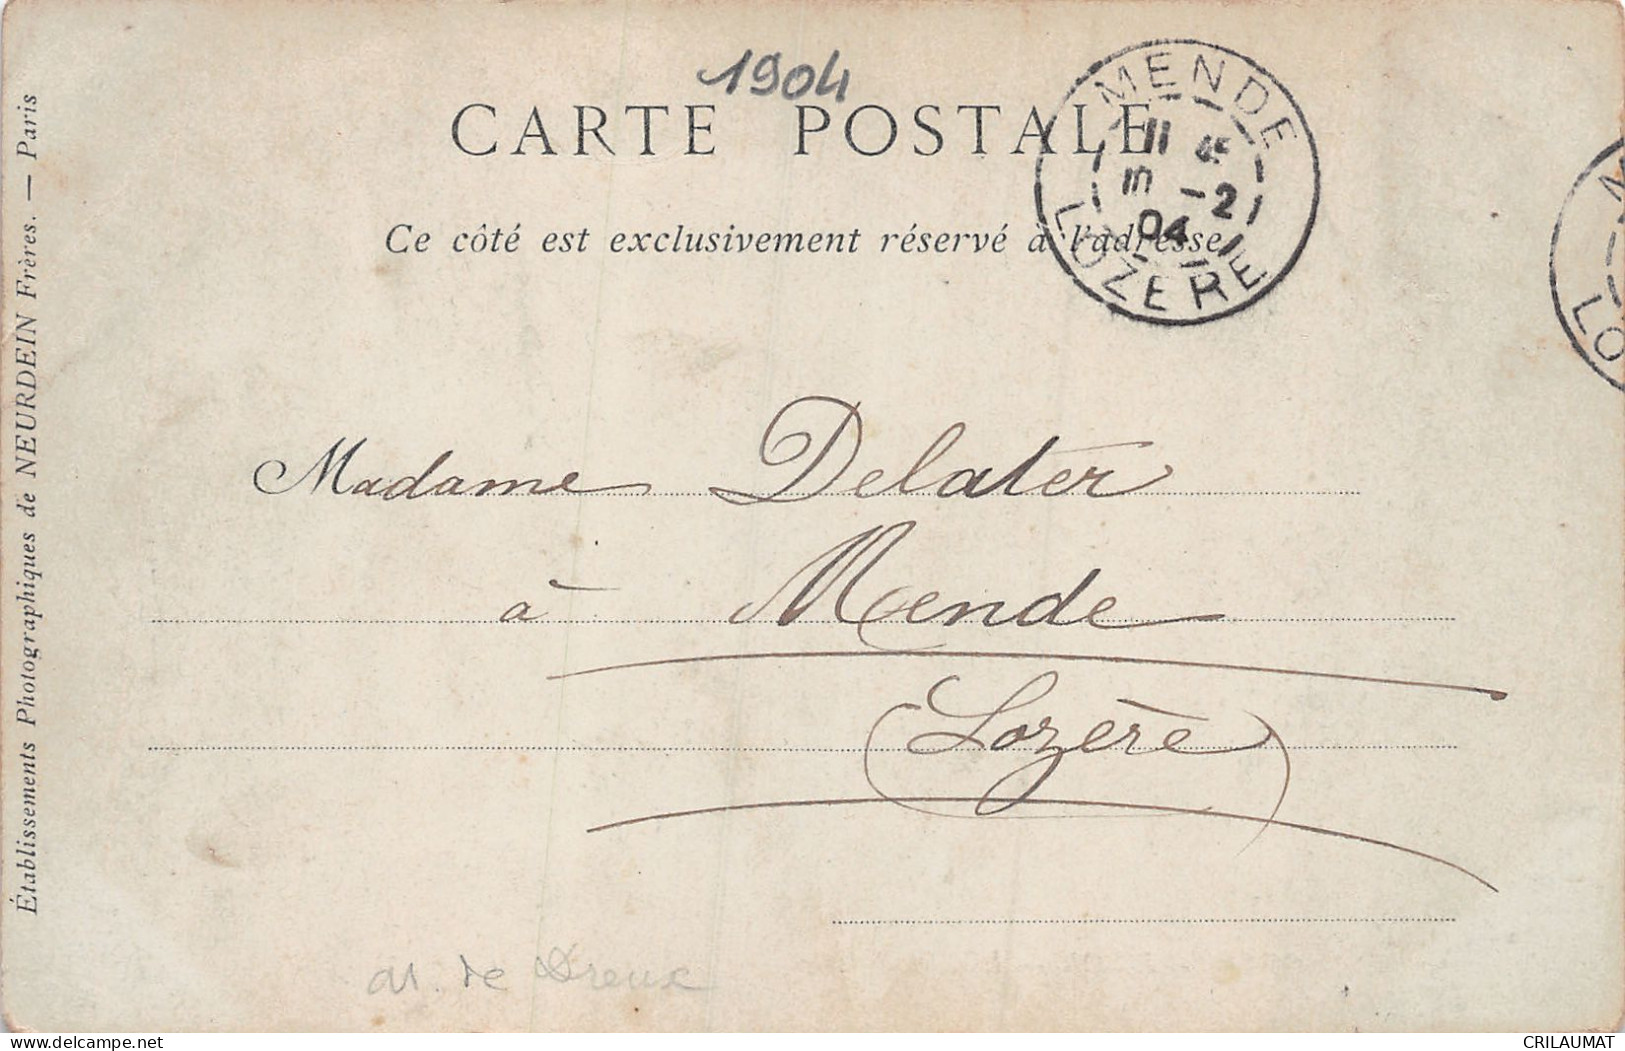 1904
CARTE POSTALE
Ce côté est exclusivement réservé à l'adresse
MENDE
11
-2
04
LOZERE
LO
Madame Delater
à Mende
(Lozère)
Établissements Photographiques de NEURDEIN Frères. — Paris
de Dreux
delcampe.net
CRILAUMAT